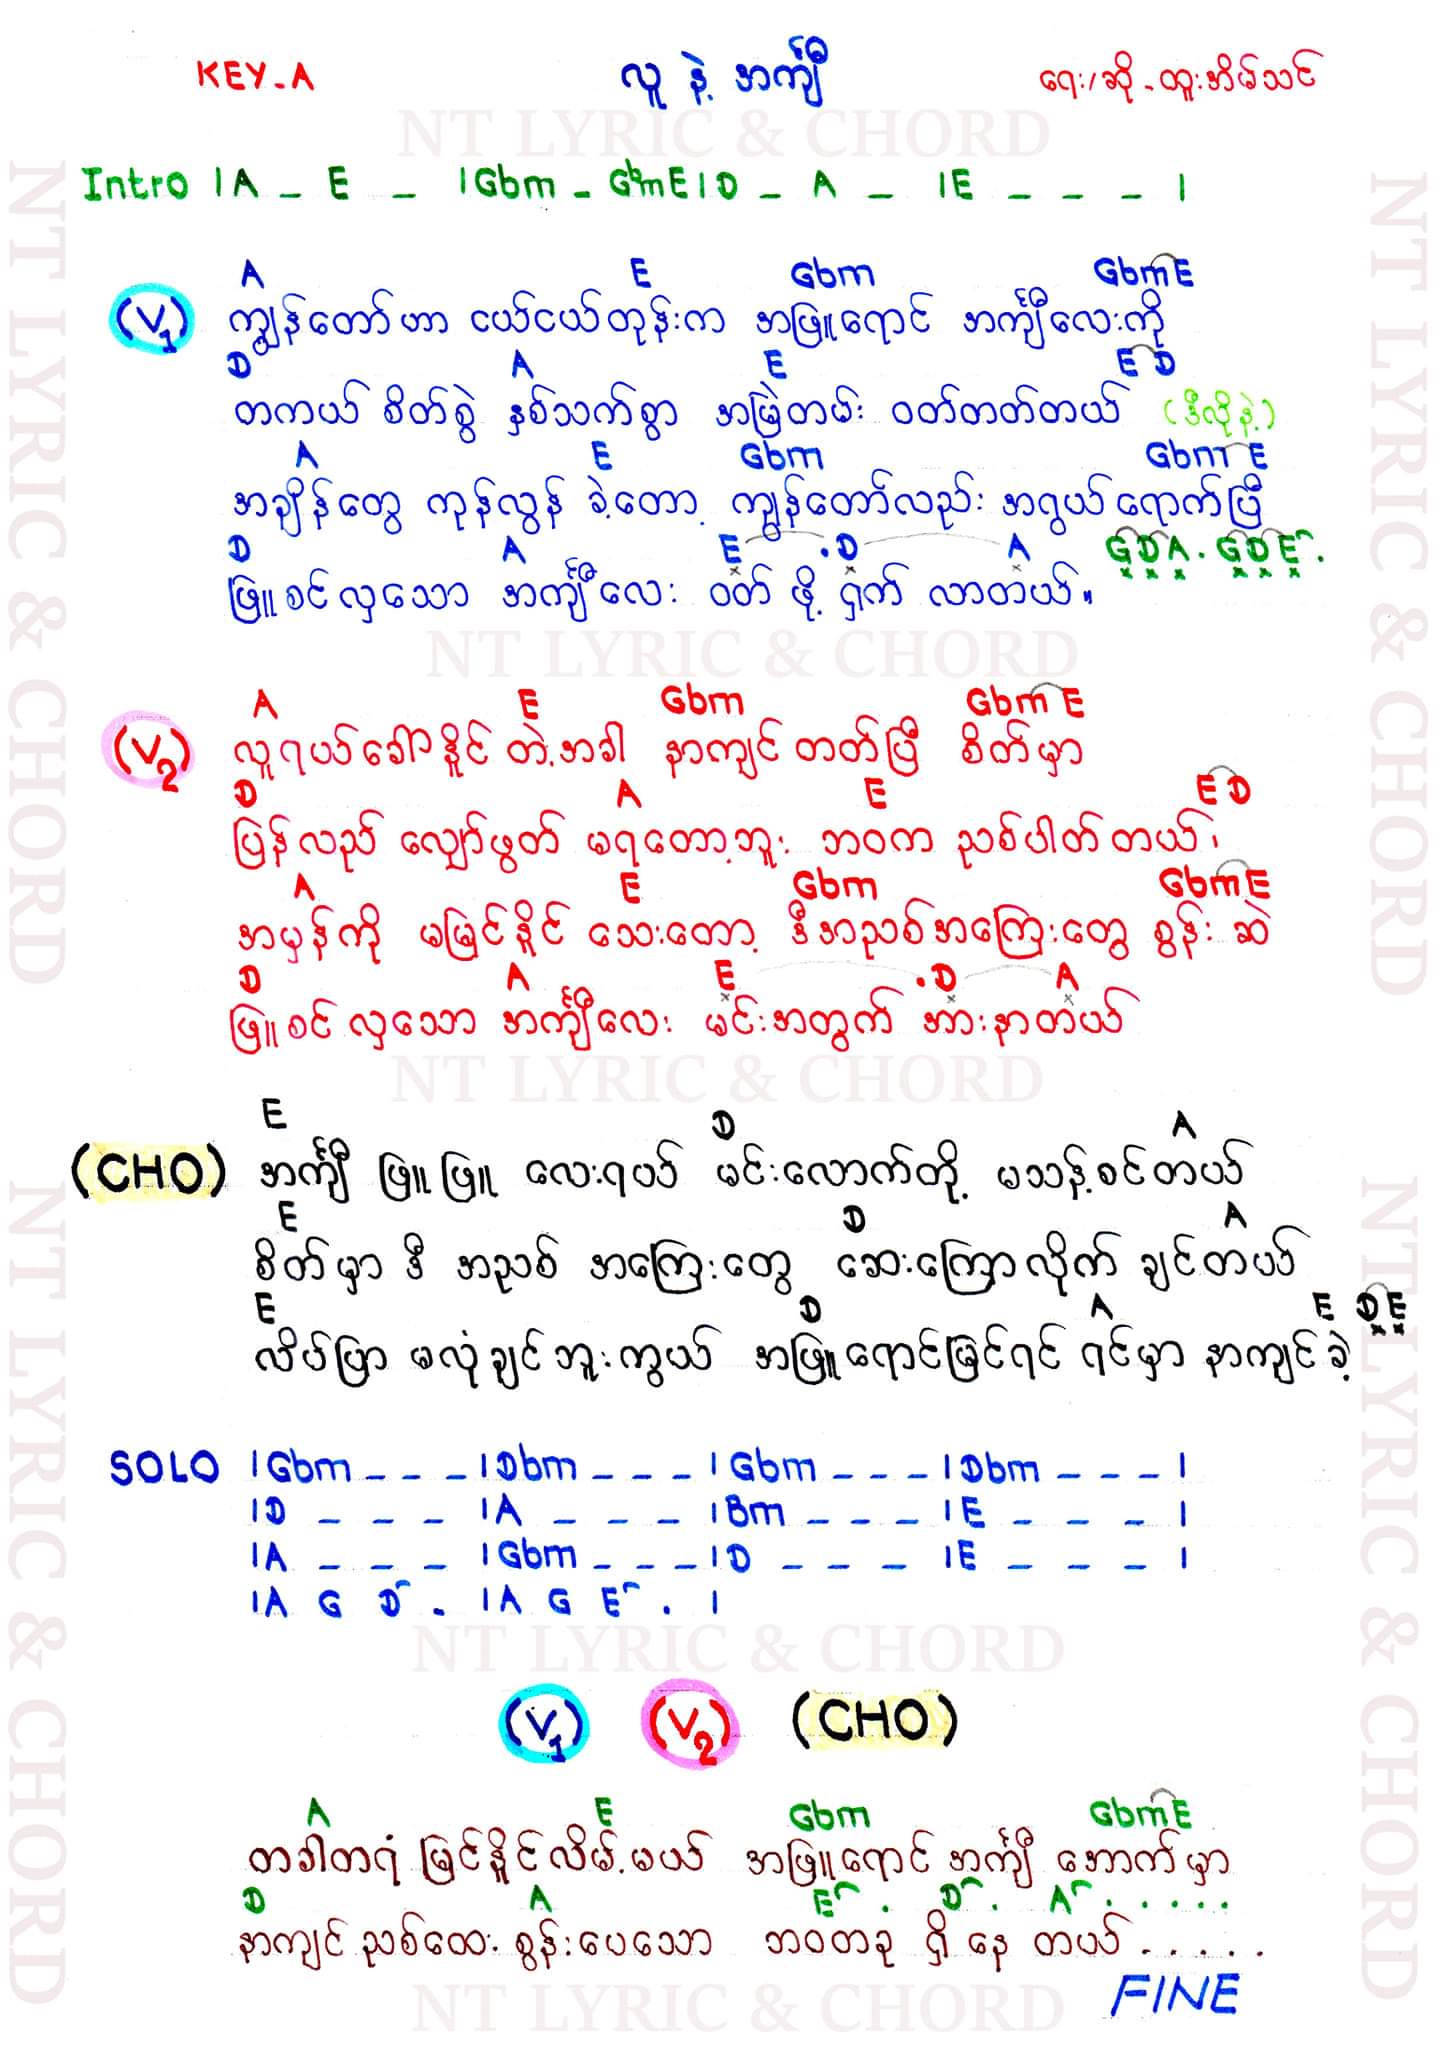 KEY - A လူ နဲ့ အင်္ကျီ ရေး/ဆို - ထူးအိမ်သင်
NT LYRIC & CHORD
Intro | A _ E _ | Gbm _ GbmE | D _ A _ | E _ _ _ |
A E Gbm GbmE
(V1) ကျွန်တော်ဟာ ငယ်ငယ်တုန်းက အဖြူရောင် အင်္ကျီလေးကို
D A E E D
တကယ် စိတ်စွဲ နှစ်သက်စွာ အမြဲတမ်း ဝတ်တတ်တယ် (ဒီလိုနဲ့)
A E Gbm Gbm E
အချိန်တွေ ကုန်လွန် ခဲ့တော့ ကျွန်တော်လည်း အရွယ်ရောက်ပြီ
D A E . D A G D A . G D E .
ဖြူစင်လှသော အင်္ကျီလေး ဝတ် ဖို့ ရှက် လာတယ်။
NT LYRIC & CHORD
A E Gbm Gbm E
(V2) လူရယ်ခေါ်နိူင် တဲ့အခါ နာကျင်တတ်ပြီ စိတ်မှာ
D A E E D
ပြန်လည် လျှော်ဖွတ် မရတော့ဘူး ဘဝက ညစ်ပါတ်တယ်၊
A E Gbm GbmE
အမှန်ကို မမြင်နိူင် သေးတော့ ဒီအညစ်အကြေးတွေ စွန်းဆဲ
D A E . D A
ဖြူစင်လှသော အင်္ကျီလေး မင်းအတွက် အားနာတယ်
NT LYRIC & CHORD
E D A
(CHO) အင်္ကျီ ဖြူဖြူ လေးရယ် မင်းလောက်တို့ မသန့်စင်တယ်
E D A
စိတ်မှာ ဒီ အညစ် အကြေးတွေ ဆေးကြောလိုက် ချင်တယ်
E D A E D E
လိမ်ပြာ မလုံချင်ဘူးကွယ် အဖြူရောင်မြင်ရင် ရင်မှာ နာကျင်ခဲ့
SOLO | Gbm _ _ _ | Dbm _ _ _ | Gbm _ _ _ | Dbm _ _ _ |
| D _ _ _ | A _ _ _ | Bm _ _ _ | E _ _ _ |
| A _ _ _ | Gbm _ _ _ | D _ _ _ | E _ _ _ |
| A G D . | A G E . |
NT LYRIC & CHORD
(V1) (V2) (CHO)
A E Gbm GbmE
တခါတရံ မြင်နိူင်လိမ့်မယ် အဖြူရောင် အင်္ကျီ အောက်မှာ
D A E . D . A . . . . .
နာကျင်ညစ်ထေး စွန်းပေသော ဘဝတခု ရှိနေ တယ် . . . . .
FINE
NT LYRIC & CHORD
NT LYRIC & CHORD
NT LYRIC & CHORD
NT LYRIC & CHORD
NT LYRIC & CHORD